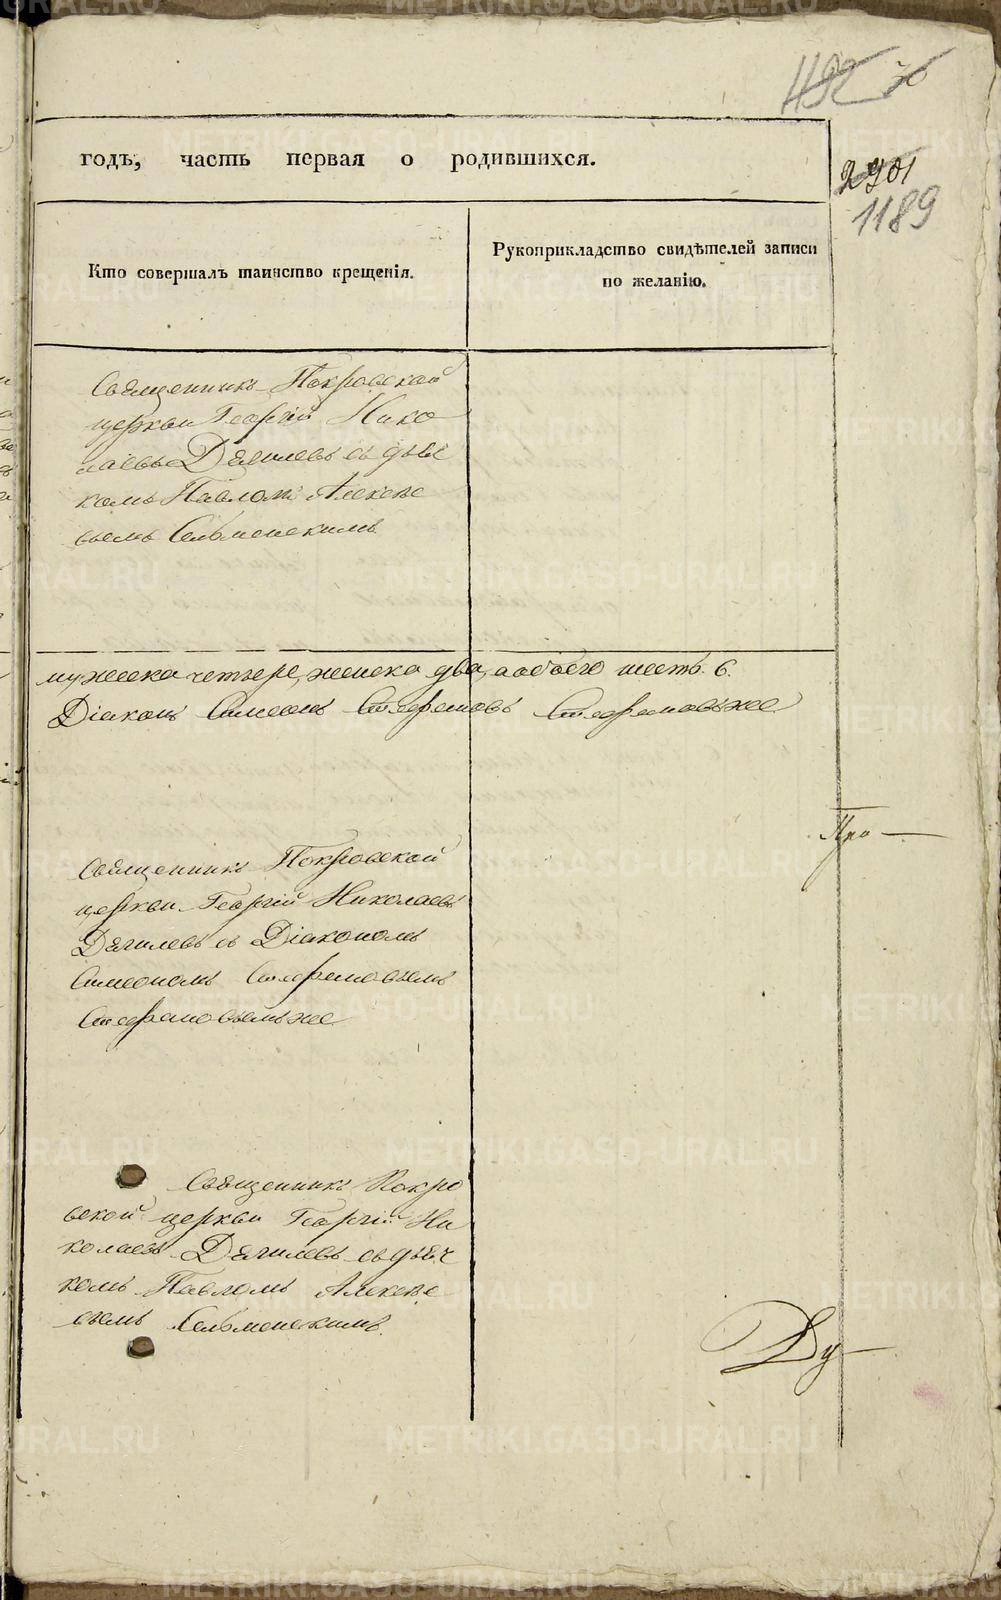 1189
годъ, часть первая о родившихся.
Кто совершалъ таинство крещенія.
Рукоприкладство свидѣтелей записи
по желанію.
Священникъ Покровской
церкви Георгій Нико
лаевъ Дягилевъ съ дьяч
комъ Павломъ Алексѣе
вымъ Сельменскимъ
мужеска четыре, женска два, а обоего шесть. 6.
Діаконъ Симеонъ Стефановъ Стефановыже
Священникъ Покровской
церкви Георгій Николаевъ
Дягилевъ съ Діакономъ
Симеономъ Стефановымъ
Стефановымъже
Священникъ Покро
вской церкви Георгій Ни
колаевъ Дягилевъ съ дьяч
комъ Павломъ Алексѣе
вымъ Сельменскимъ.
Ду
METRIKI.GASO-URAL.RU